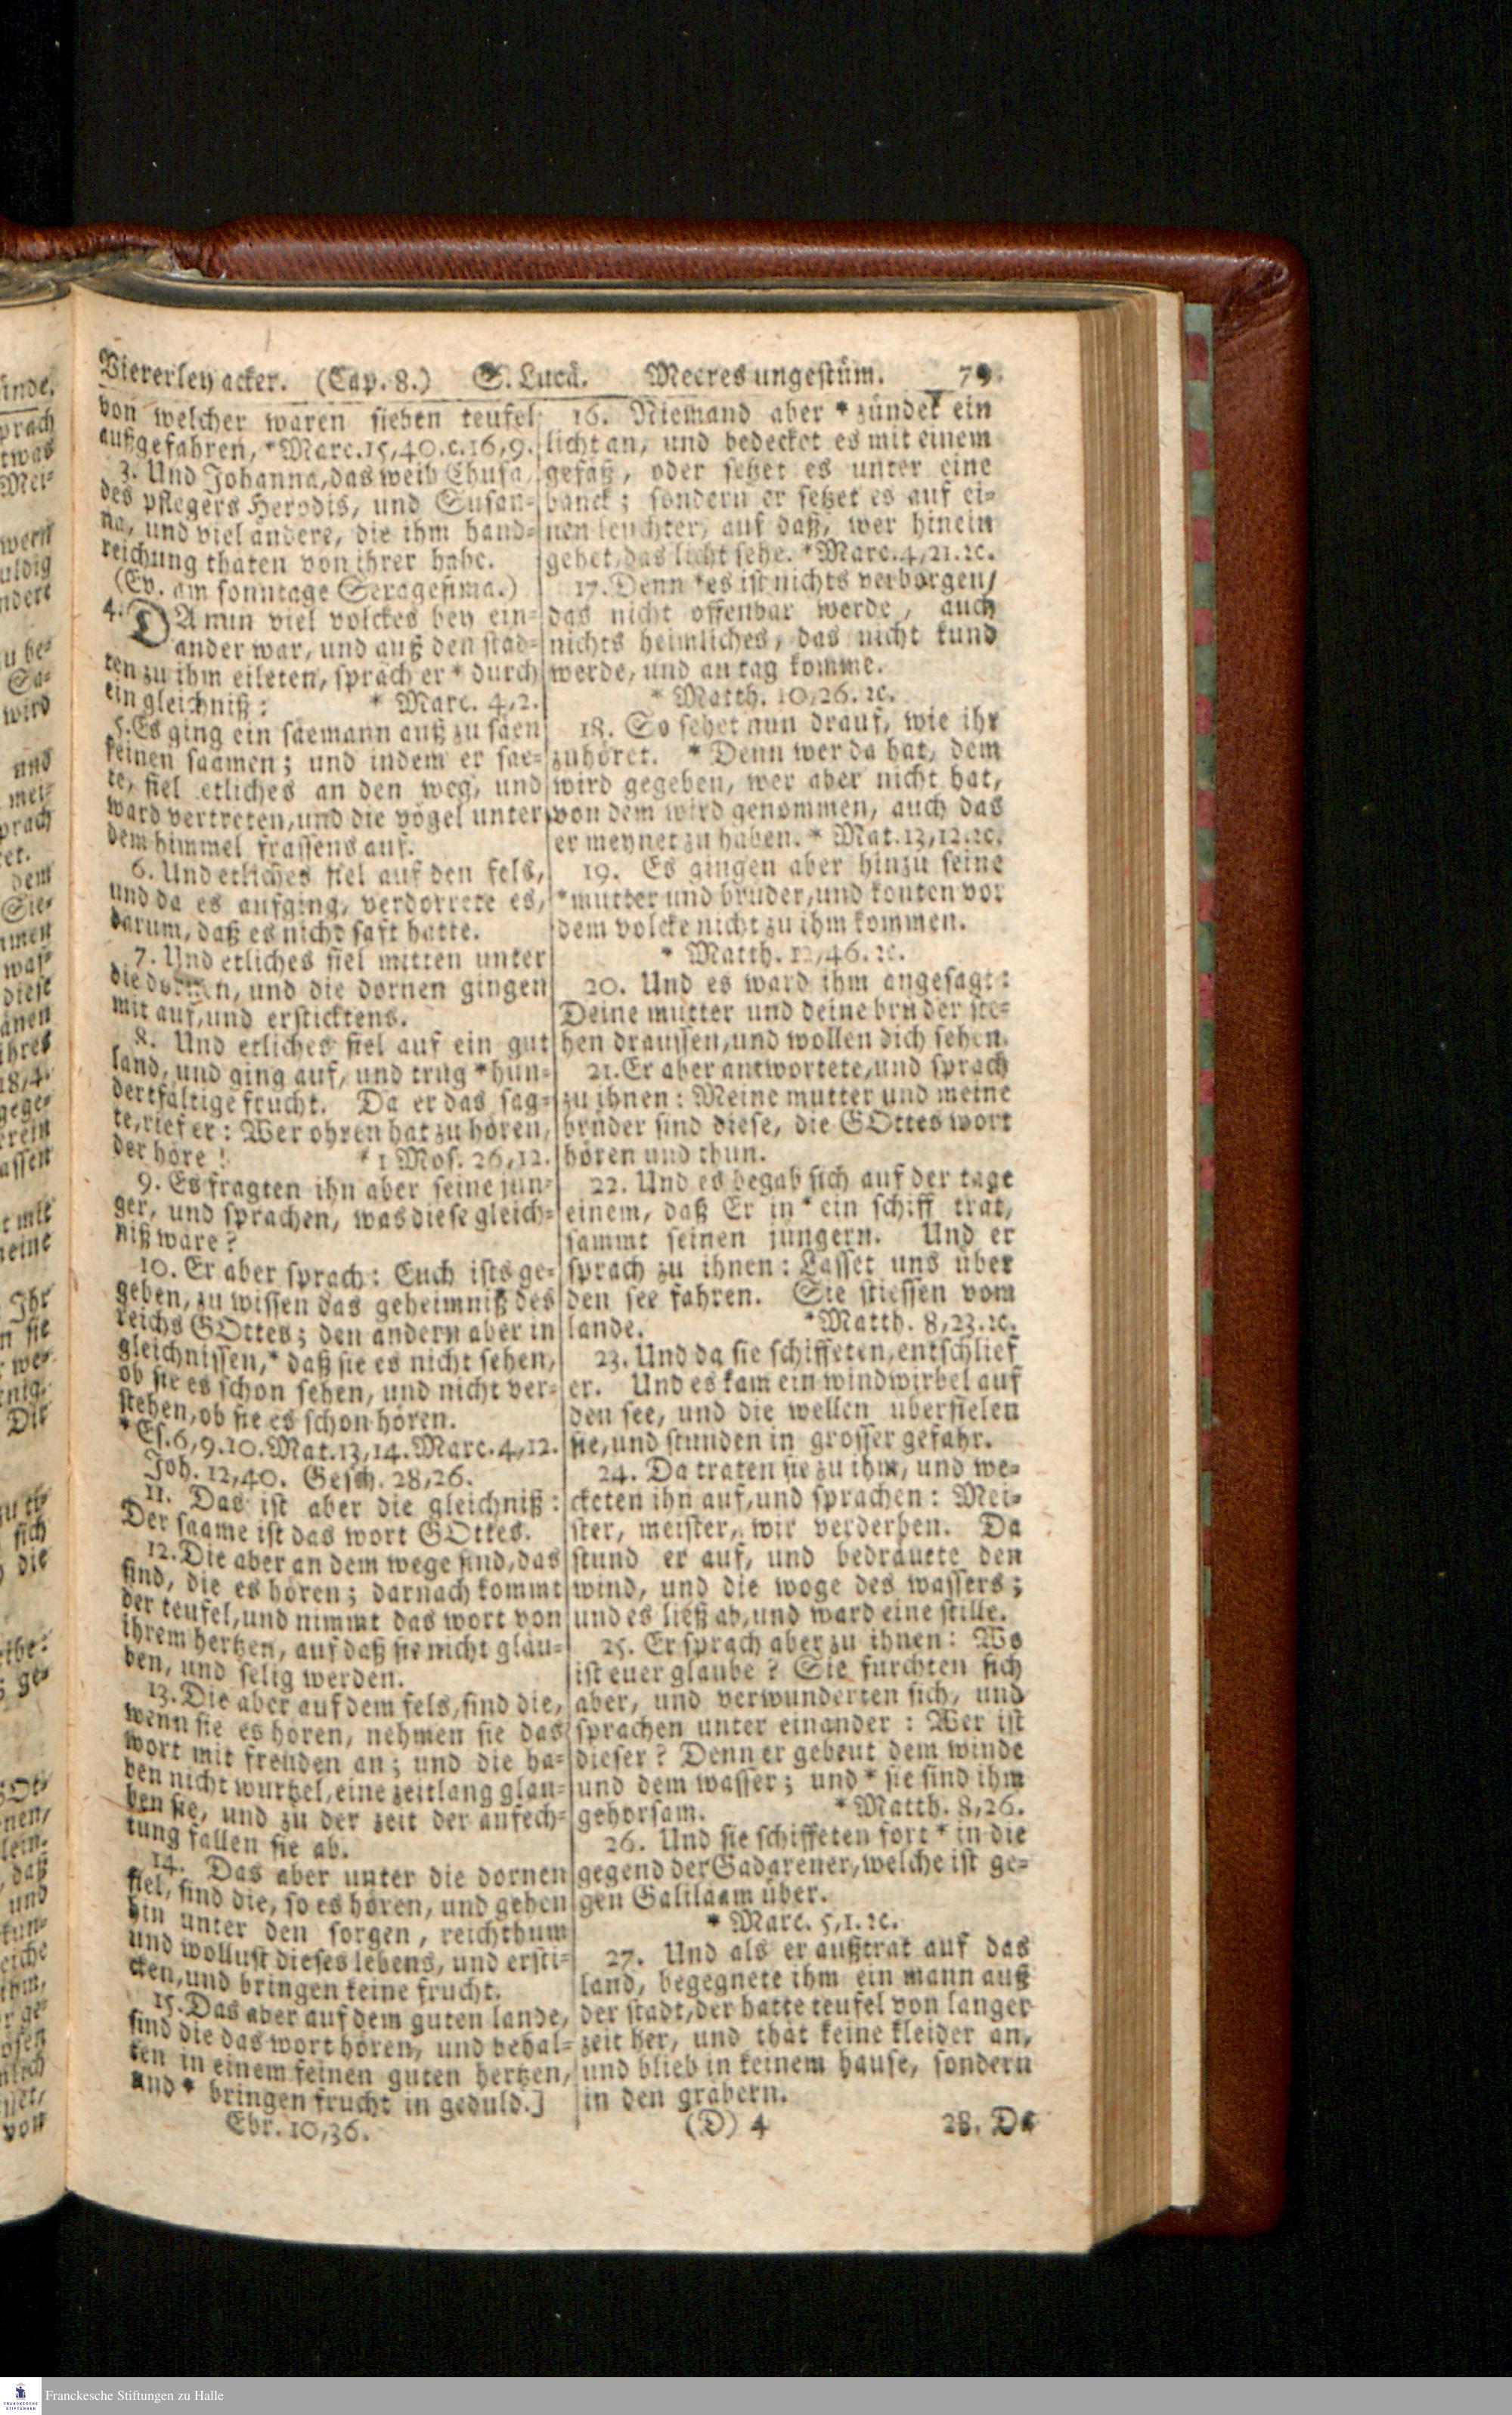 Viererley acker. (Cap. 8.) S. Lucä. Meeres ungestüm. 79.
von welcher waren sieben teufel
außgefahren, *Marc. 15, 40. c. 16, 9.
3. Und Johanna, das weib Chusa,
des pflegers Herodis, und Susan-
na, und viel andere, die ihm hand-
reichung thaten von ihrer habe.
(Ev. am sonntage Sexagesima.)
4. DA nun viel volckes bey ein-
ander war, und auß den städ-
ten zu ihm eileten, sprach er * durch
ein gleichniß: * Marc. 4, 2.
5. Es ging ein säemann auß zu säen
seinen saamen; und indem er säe-
te, fiel etliches an den weg, und
ward vertreten, und die vögel unter
dem himmel frassens auf.
6. Und etliches fiel auf den fels,
und da es aufging, verdorrete es,
darum, daß es nicht saft hatte.
7. Und etliches fiel mitten unter
die dornen, und die dornen gingen
mit auf, und ersticktens.
8. Und etliches fiel auf ein gut
land, und ging auf, und trug * hun-
dertfältige frucht. Da er das sag-
te, rief er: Wer ohren hat zu hören,
der höre! * 1 Mos. 26, 12.
9. Es fragten ihn aber seine jün-
ger, und sprachen, was diese gleich-
niß wäre?
10. Er aber sprach: Euch ists ge-
geben, zu wissen das geheimniß des
reichs GOttes; den andern aber in
gleichnissen, * daß sie es nicht sehen,
ob sie es schon sehen, und nicht ver-
stehen, ob sie es schon hören.
* Es. 6, 9. 10. Mat. 13, 14. Marc. 4, 12.
Joh. 12, 40. Gesch. 28, 26.
11. Das ist aber die gleichniß:
Der saame ist das wort GOttes.
12. Die aber an dem wege sind, das
sind, die es hören; darnach kommt
der teufel, und nimmt das wort von
ihrem hertzen, auf daß sie nicht gläu-
ben, und selig werden.
13. Die aber auf dem fels, sind die,
wenn sie es hören, nehmen sie das
wort mit freuden an; und die ha-
ben nicht wurtzel, eine zeitlang gläu-
ben sie, und zu der zeit der anfech-
tung fallen sie ab.
14. Das aber unter die dornen
fiel, sind die, so es hören, und gehen
hin unter den sorgen, reichthum
und wollust dieses lebens, und ersti-
cken, und bringen keine frucht.
15. Das aber auf dem guten lande,
sind die das wort hören, und behal-
ten in einem feinen guten hertzen,
und * bringen frucht in geduld.]
Ebr. 10, 36.
16. Niemand aber * zündet ein
licht an, und bedecket es mit einem
gefäß, oder setzet es unter eine
banck; sondern er setzet es auf ei-
nen leuchter, auf daß, wer hinein
gehet, das licht sehe. * Marc. 4, 21. ꝛc.
17. Denn * es ist nichts verborgen/
das nicht offenbar werde, auch
nichts heimliches, das nicht kund
werde, und an tag komme.
* Matth. 10, 26. ꝛc.
18. So sehet nun drauf, wie ihr
zuhöret. * Denn wer da hat, dem
wird gegeben, wer aber nicht hat,
von dem wird genommen, auch das
er meynet zu haben. * Mat. 13, 12. ꝛc.
19. Es gingen aber hinzu seine
* mutter und brüder, und konten vor
dem volcke nicht zu ihm kommen.
* Matth. 12, 46. ꝛc.
20. Und es ward ihm angesagt:
Deine mutter und deine brüder ste-
hen draussen, und wollen dich sehen.
21. Er aber antwortete, und sprach
zu ihnen: Meine mutter und meine
brüder sind diese, die GOttes wort
hören und thun.
22. Und es begab sich auf der tage
einem, daß Er in * ein schiff trat,
sammt seinen jüngern. Und er
sprach zu ihnen: Lasset uns über
den see fahren. Sie stiessen vom
lande. * Matth. 8, 23. ꝛc.
23. Und da sie schiffeten, entschlief
er. Und es kam ein windwirbel auf
den see, und die wellen überfielen
sie, und stunden in grosser gefahr.
24. Da traten sie zu ihm, und we-
cketen ihn auf, und sprachen: Mei-
ster, meister, wir verderben. Da
stund er auf, und bedräuete den
wind, und die woge des wassers;
und es ließ ab, und ward eine stille.
25. Er sprach aber zu ihnen: Wo
ist euer glaube? Sie furchten sich
aber, und verwunderten sich, und
sprachen unter einander: Wer ist
dieser? Denn er gebeut dem winde
und dem wasser; und * sie sind ihm
gehorsam. * Matth. 8, 26.
26. Und sie schiffeten fort * in die
gegend der Gadarener, welche ist ge-
gen Galiläam über.
* Marc. 5, 1. ꝛc.
27. Und als er außtrat auf das
land, begegnete ihm ein mann auß
der stadt, der hatte teufel von langer
zeit her, und thät keine kleider an,
und blieb in keinem hause, sondern
in den gräbern.
(D) 4 28. Da
Franckesche Stiftungen zu Halle